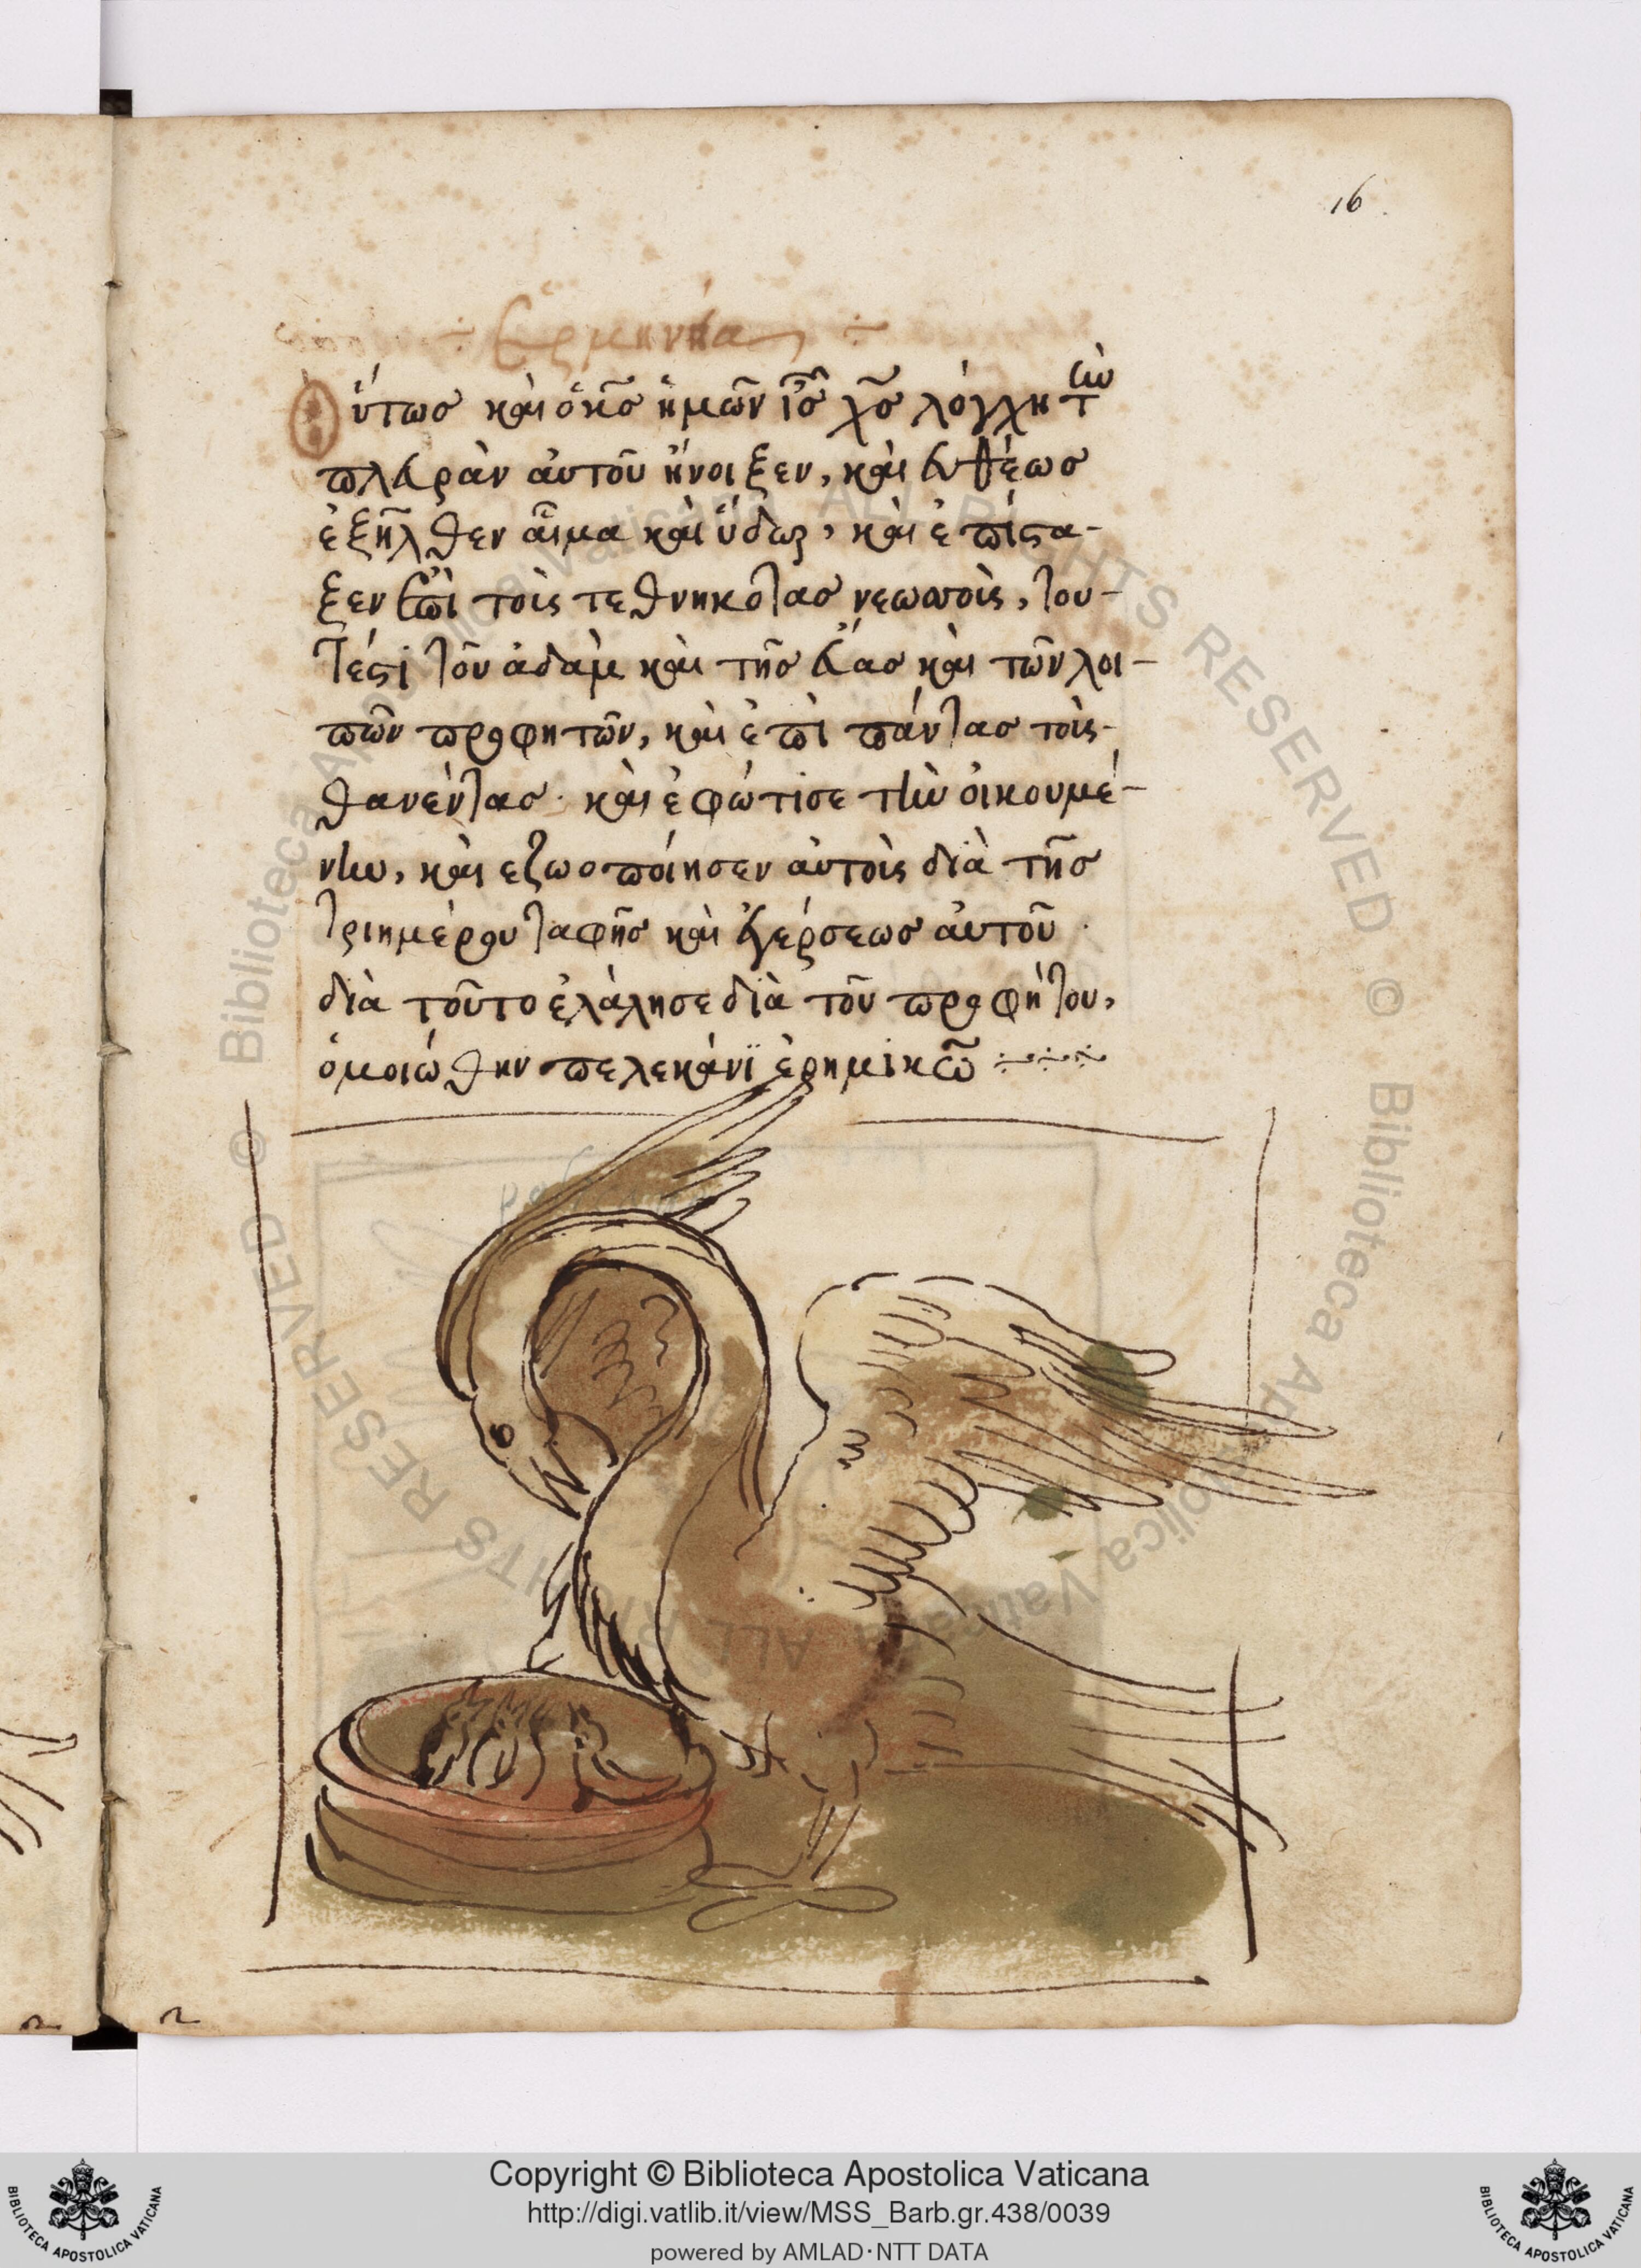 16.
÷ Ἑρμηνεία ÷
Οὕτως καὶ ὁ κ̅ς̅ ἡμῶν ι̅ς̅ χ̅ς̅ λόγχη τὴν
πλευρὰν αὐτοῦ ἤνοιξεν, καὶ εὐθέως
ἐξῆλθεν αἷμα καὶ ὕδωρ, καὶ ἐπίστα-
ξεν ἐπὶ τοὺς τεθνηκότας νεωσοὺς, του-
τέστι τοῦ ἀδὰμ καὶ τῆς εὔας καὶ τῶν λοι-
πῶν προφητῶν, καὶ ἐπὶ πάντας τοὺς
θανέντας· καὶ ἐφώτισε τὴν οἰκουμέ-
νην, καὶ εζωοποίησεν αὐτοὺς διὰ τῆς
τριημέρου ταφῆς καὶ ἐγέρσεως αὐτοῦ·
διὰ τοῦτο ἐλάλησε διὰ τοῦ προφήτου,
ὁμοιώθην πελεκάνϊ ἐρημικῶ
© Biblioteca Apostolica Vaticana ALL RIGHTS RESERVED © Biblioteca Apostolica Vaticana ALL RIGHTS RESERVED
Copyright © Biblioteca Apostolica Vaticana
http://digi.vatlib.it/view/MSS_Barb.gr.438/0039
powered by AMLAD·NTT DATA
BIBLIOTECA APOSTOLICA VATICANA
BIBLIOTECA APOSTOLICA VATICANA